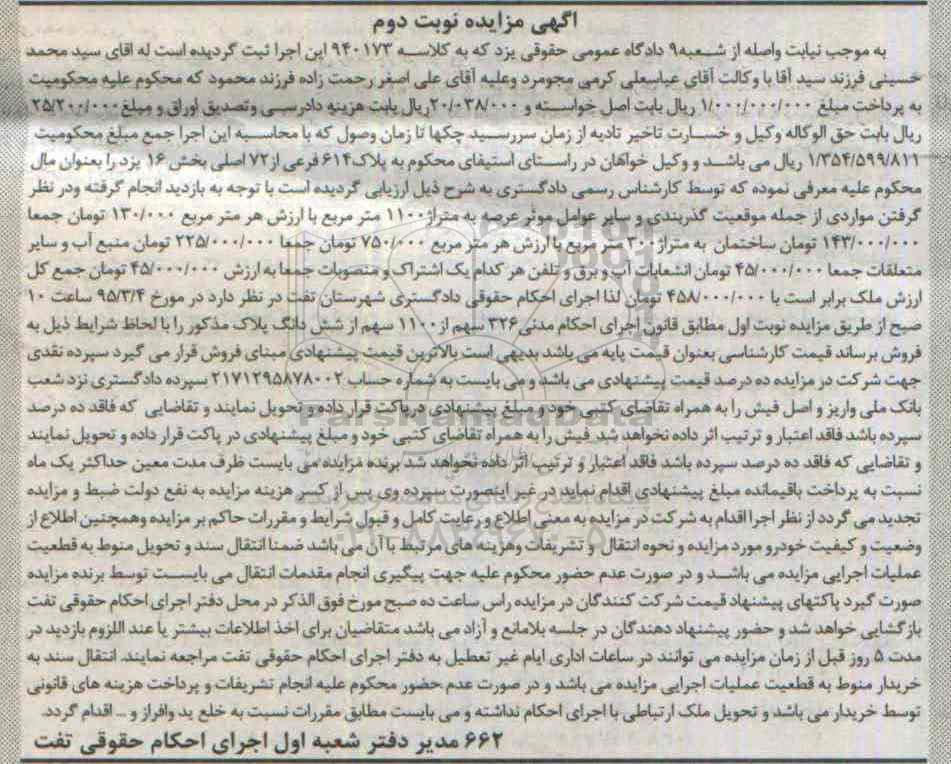 اگهی مزایده نوبت دوم
به موجب نیابت واصله از شعبه۹ دادگاه عمومی حقوقی یزد که به کلاسه ۹۴۰۱۷۳ این اجرا ثبت گردیده است له اقای سید محمد
حسینی فرزند سید آقا با وکالت آقای عباسعلی کرمی مجومرد وعلیه آقای علی اصغر رحمت زاده فرزند محمود که محکوم علیه محکومیت
به پرداخت مبلغ ۱/۰۰۰/۰۰۰/۰۰۰ ریال بابت اصل خواسته و ۲۰/۰۳۸/۰۰۰ریال بابت هزینه دادرسی وتصدیق اوراق و مبلغ ۲۵/۲۰۰/۰۰۰
ریال بابت حق الوکاله وکیل و خسارت تاخیر تادیه از زمان سررسید چکها تا زمان وصول که با محاسبه این اجرا جمع مبلغ محکومیت
۱/۳۵۴/۵۹۹/۸۱۱ ریال می باشد و وکیل خواهان در راستای استیفای محکوم به پلاک۶۱۴ فرعی از۷۲ اصلی بخش ۱۶ یزد را بعنوان مال
محکوم علیه معرفی نموده که توسط کارشناس رسمی دادگستری به شرح ذیل ارزیابی گردیده است با توجه به بازدید انجام گرفته ودر نظر
گرفتن مواردی از جمله موقعیت گذربندی و سایر عوامل موثر عرصه به متراژ۱۱۰۰ متر مربع با ارزش هر متر مربع ۱۳۰/۰۰۰ تومان جمعا
۱۴۳/۰۰۰/۰۰۰ تومان ساختمان به متراژ۳۰۰ متر مربع با ارزش هر متر مربع ۷۵۰/۰۰۰ تومان جمعا ۲۲۵/۰۰۰/۰۰۰ تومان منبع آب و سایر
متعلقات جمعا ۴۵/۰۰۰/۰۰۰ تومان انشعابات آب و برق و تلفن هر کدام یک اشتراک و منصوبات جمعا به ارزش ۴۵/۰۰۰/۰۰۰ تومان جمع کل
ارزش ملک برابر است با ۴۵۸/۰۰۰/۰۰۰ تومان لذا اجرای احکام حقوقی دادگستری شهرستان تفت در نظر دارد در مورخ ۹۵/۳/۴ ساعت ۱۰
صبح از طریق مزایده نوبت اول مطابق قانون اجرای احکام مدنی ۳۲۶ سهم از ۱۱۰۰ سهم از شش دانگ پلاک مذکور را با لحاظ شرایط ذیل به
فروش برساند قیمت کارشناسی بعنوان قیمت پایه می باشد بدیهی است بالاترین قیمت پیشنهادی مبنای فروش قرار می گیرد سپرده نقدی
جهت شرکت در مزایده ده درصد قیمت پیشنهادی می باشد و می بایست به شماره حساب ۲۱۷۱۲۹۵۸۷۸۰۰۲ سپرده دادگستری نزد شعب
بانک ملی واریز و اصل فیش را به همراه تقاضای کتبی خود و مبلغ پیشنهادی درپاکت قرار داده و تحویل نمایند و تقاضایی که فاقد ده درصد
سپرده باشد فاقد اعتبار و ترتیب اثر داده نخواهد شد فیش را به همراه تقاضای کتبی خود و مبلغ پیشنهادی در پاکت قرار داده و تحویل نمایند
و تقاضایی که فاقد ده درصد سپرده باشد فاقد اعتبار و ترتیب اثر داده نخواهد شد برنده مزایده می بایست ظرف مدت معین حداکثر یک ماه
نسبت به پرداخت باقیمانده مبلغ پیشنهادی اقدام نماید در غیر اینصورت سپرده وی پس از کسر هزینه مزایده به نفع دولت ضبط و مزایده
تجدید می گردد از نظر اجرا اقدام به شرکت در مزایده به معنی اطلاع و رعایت کامل و قبول شرایط و مقررات حاکم بر مزایده وهمچنین اطلاع از
وضعیت و کیفیت خودرو مورد مزایده و نحوه انتقال و تشریفات وهزینه های مرتبط با آن می باشد ضمنا انتقال سند و تحویل منوط به قطعیت
عملیات اجرایی مزایده می باشد و در صورت عدم حضور محکوم علیه جهت پیگیری انجام مقدمات انتقال می بایست توسط برنده مزایده
صورت گیرد پاکتهای پیشنهاد قیمت شرکت کنندگان در مزایده راس ساعت ده صبح مورخ فوق الذکر در محل دفتر اجرای احکام حقوقی تفت
بازگشایی خواهد شد و حضور پیشنهاد دهندگان در جلسه بلامانع و آزاد می باشد متقاضیان برای اخذ اطلاعات بیشتر یا عند اللزوم بازدید در
مدت ۵ روز قبل از زمان مزایده می توانند در ساعات اداری ایام غیر تعطیل به دفتر اجرای احکام حقوقی تفت مراجعه نمایند. انتقال سند به
خریدار منوط به قطعیت عملیات اجرایی مزایده می باشد و در صورت عدم حضور محکوم علیه انجام تشریفات و پرداخت هزینه های قانونی
توسط خریدار می باشد و تحویل ملک ارتباطی با اجرای احکام نداشته و می بایست مطابق مقررات نسبت به خلع ید وافراز و ... اقدام گردد.
۶۶۲ مدیر دفتر شعبه اول اجرای احکام حقوقی تفت
ParsNamadData